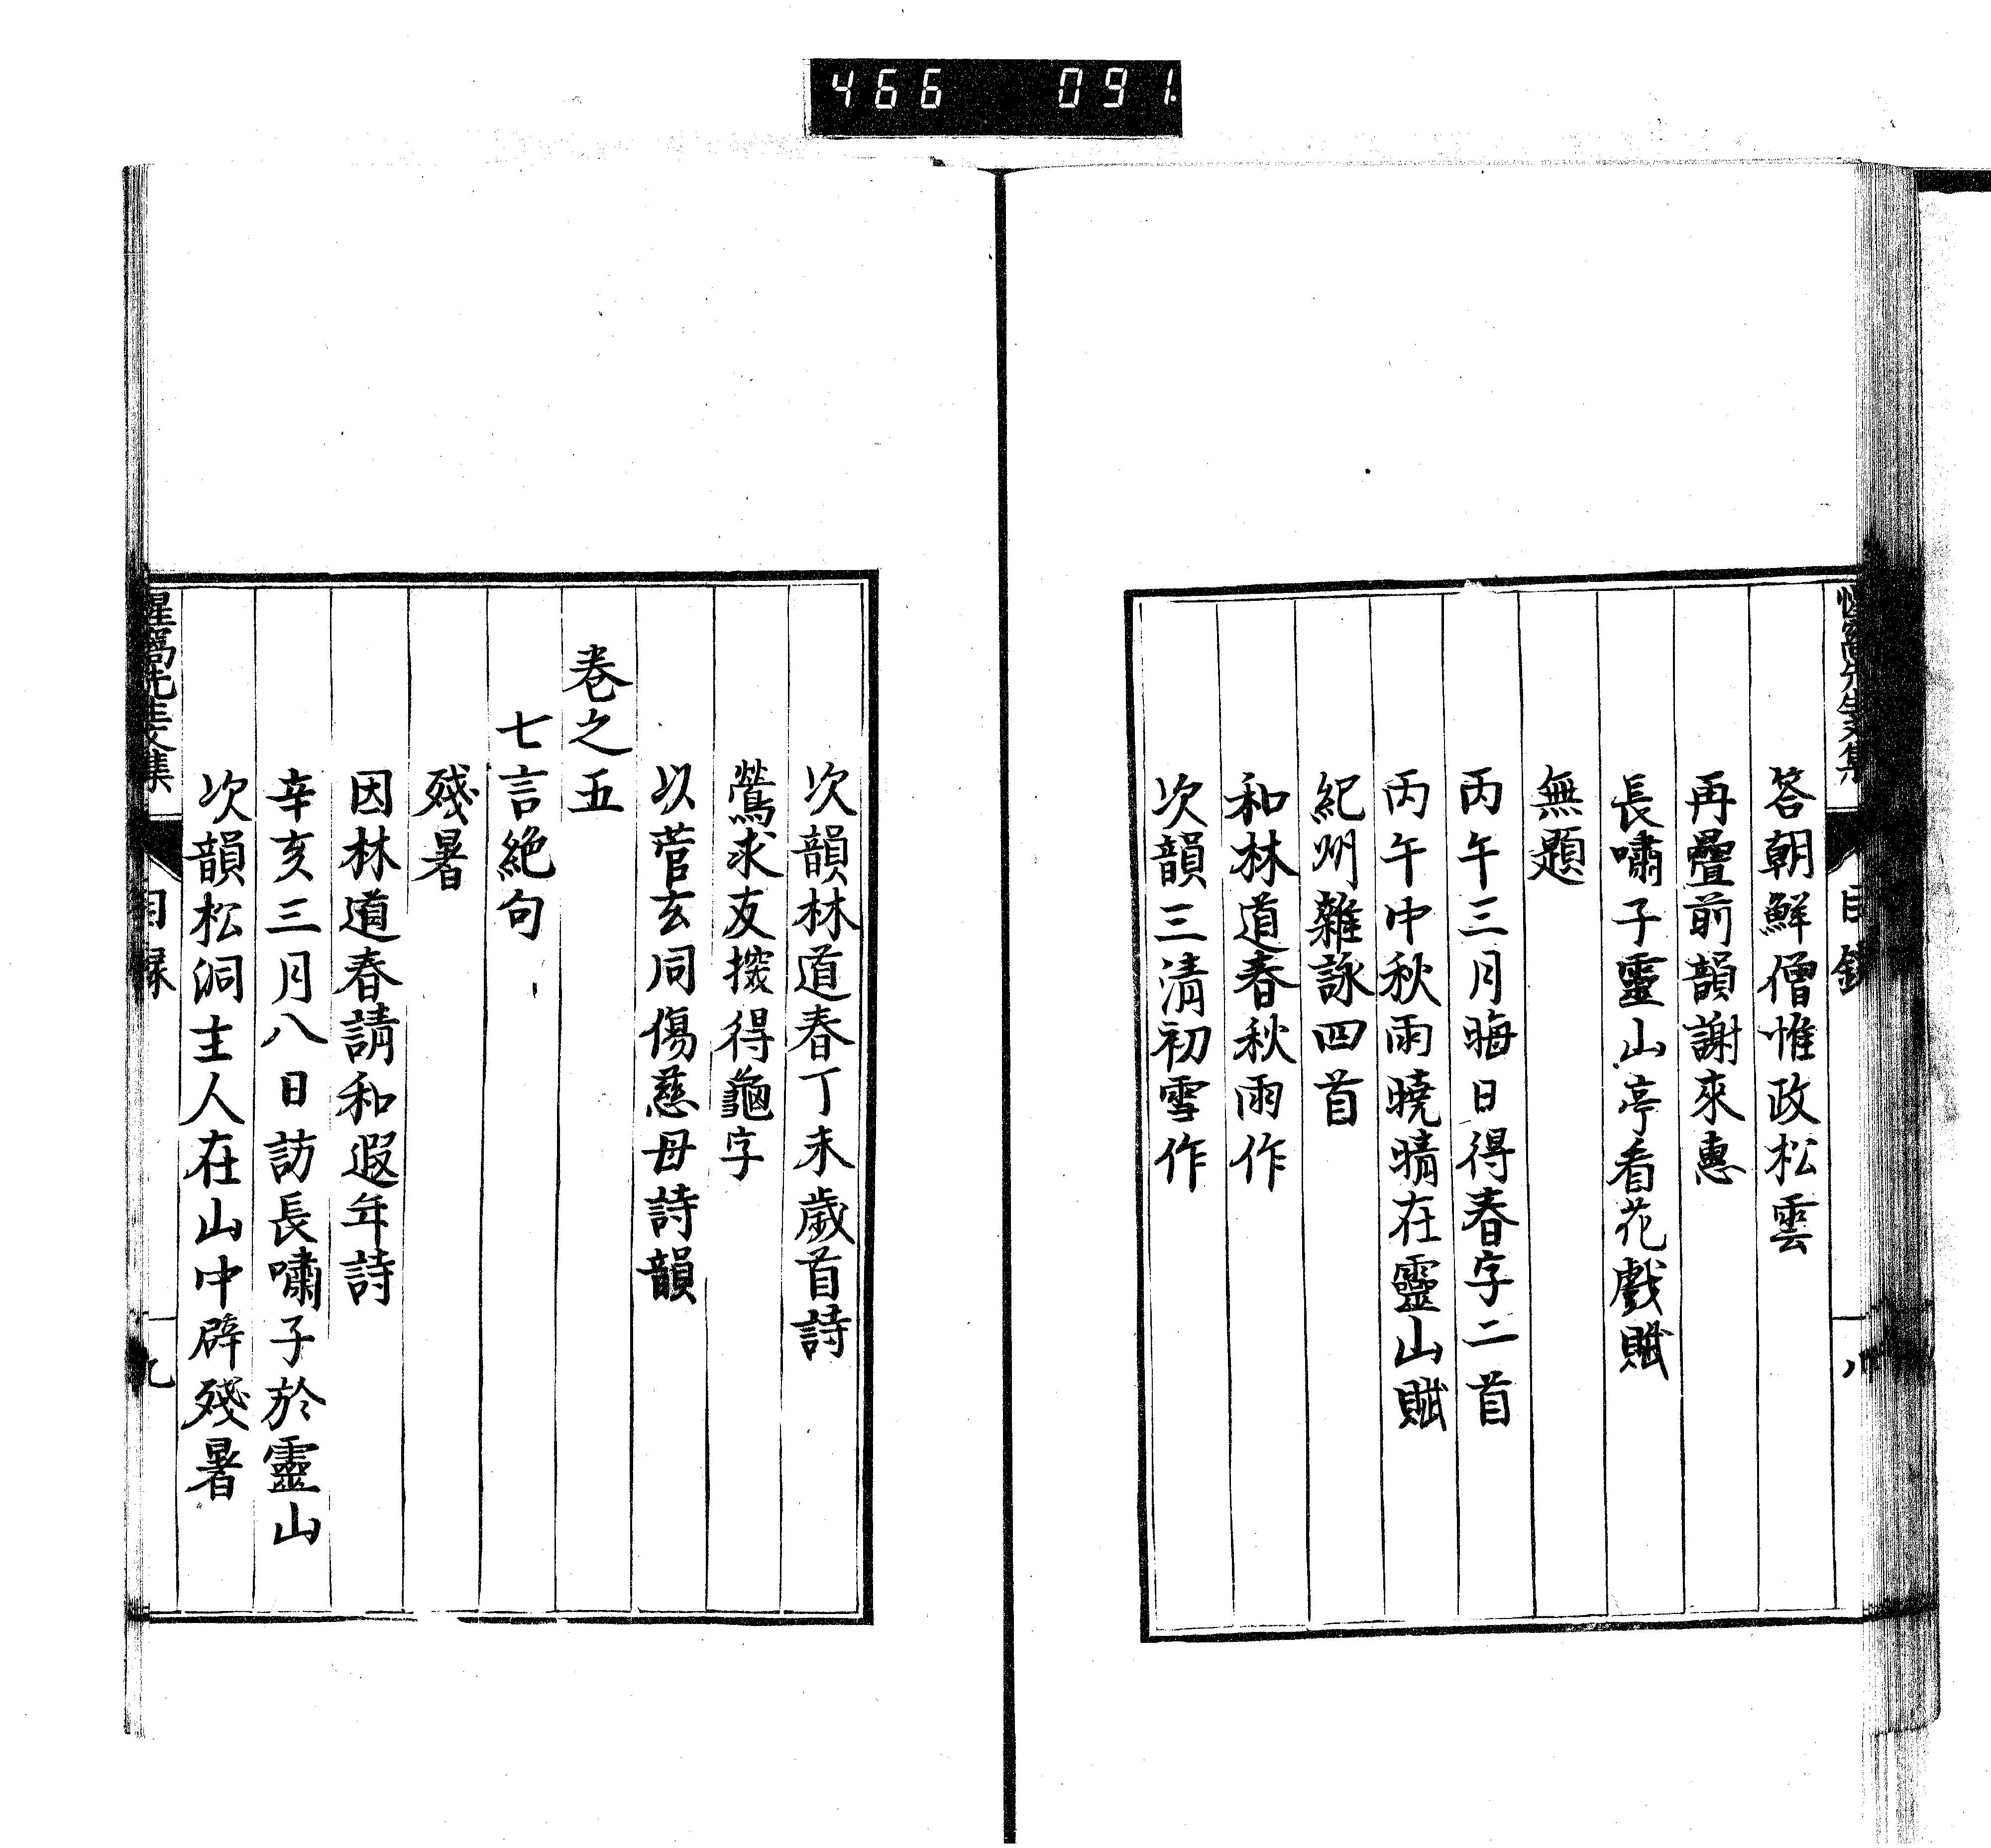 466 091
答朝鮮僧惟政松雲
再疊前韻謝來惠
長嘯子靈山亭看花戲賦
無題
丙午三月晦日得春字二首
丙午中秋雨曉晴在靈山賦
紀州雜詠四首
和林道春秋雨作
次韻三清初雪作
次韻林道春丁未歲首詩
鶯求友探得龜字
以菅玄同傷慈母詩韻
卷之五
七言絶句
殘暑
因林道春請和遐年詩
辛亥三月八日訪長嘯子於靈山
次韻松洞主人在山中辟殘暑
目録
九